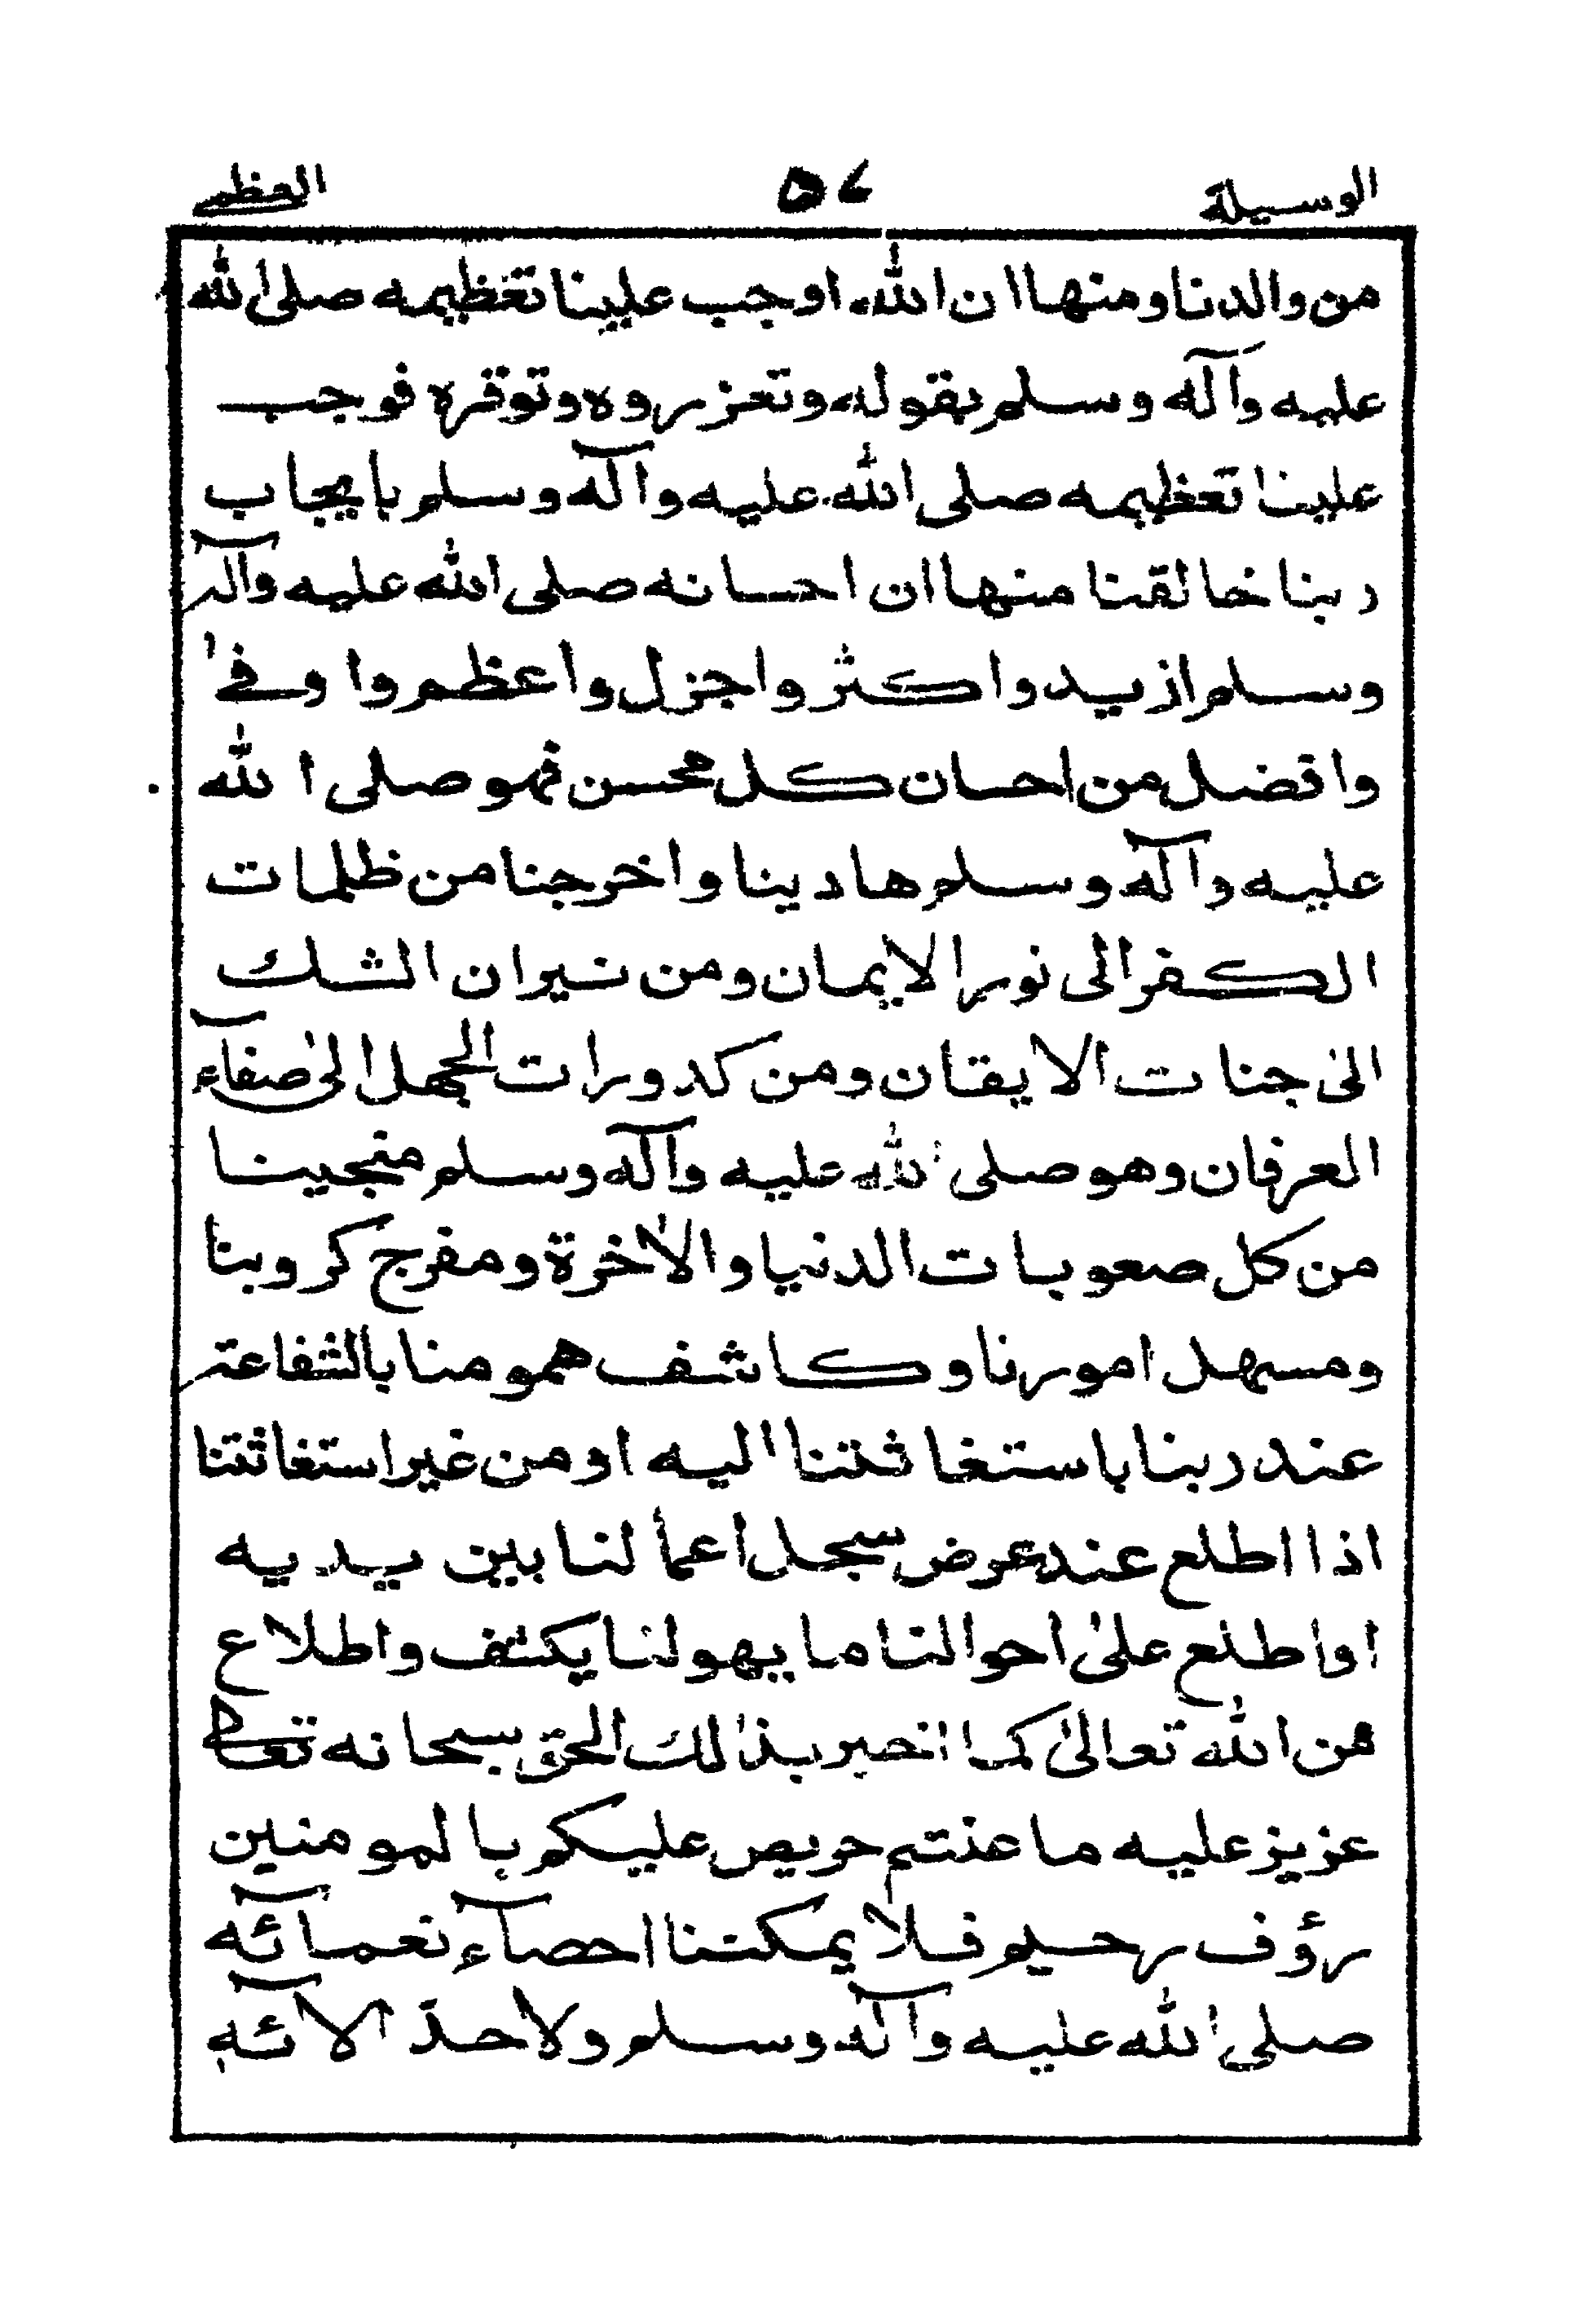 الوسيلة ٥٧ العظمى
من والدنا ومنها ان الله اوجب علينا تعظيمه صلى الله
عليه وآله وسلم بقوله وتعزروه وتوقره فوجب
علينا تعظيمه صلى الله عليه وآله وسلم بايجاب
ربنا خالقنا منها ان احسانه صلى الله عليه وآله
وسلم ازيد واكثر واجزل واعظم واوفى
وافضل من احسان كل محسن فهو صلى الله
عليه وآله وسلم هادينا واخرجنا من ظلمات
الكفر الى نور الايمان ومن نيران الشك
الى جنات الايقان ومن كدورات الجهل الى صفاء
العرفان وهو صلى الله عليه وآله وسلم منجينا
من كل صعوبات الدنيا والاخرة ومفرج كروبنا
ومسهل امورنا وكاشف همومنا بالشفاعة
عند ربنا باستغاثتنا اليه او من غير استغاثتنا
اذا اطلع عند عرض سجل اعمالنا بين يديه
او اطلع على احوالنا ما يهولنا بكشف واطلاع
من الله تعالى كما اخبر بذالك الحق سبحانه تعالى
عزيز عليه ما عنتم حريص عليكم بالمومنين
رؤف رحيم فلا يمكننا احصآء نعمآئه
صلى الله عليه وآله وسلم ولا حدّ الآئه